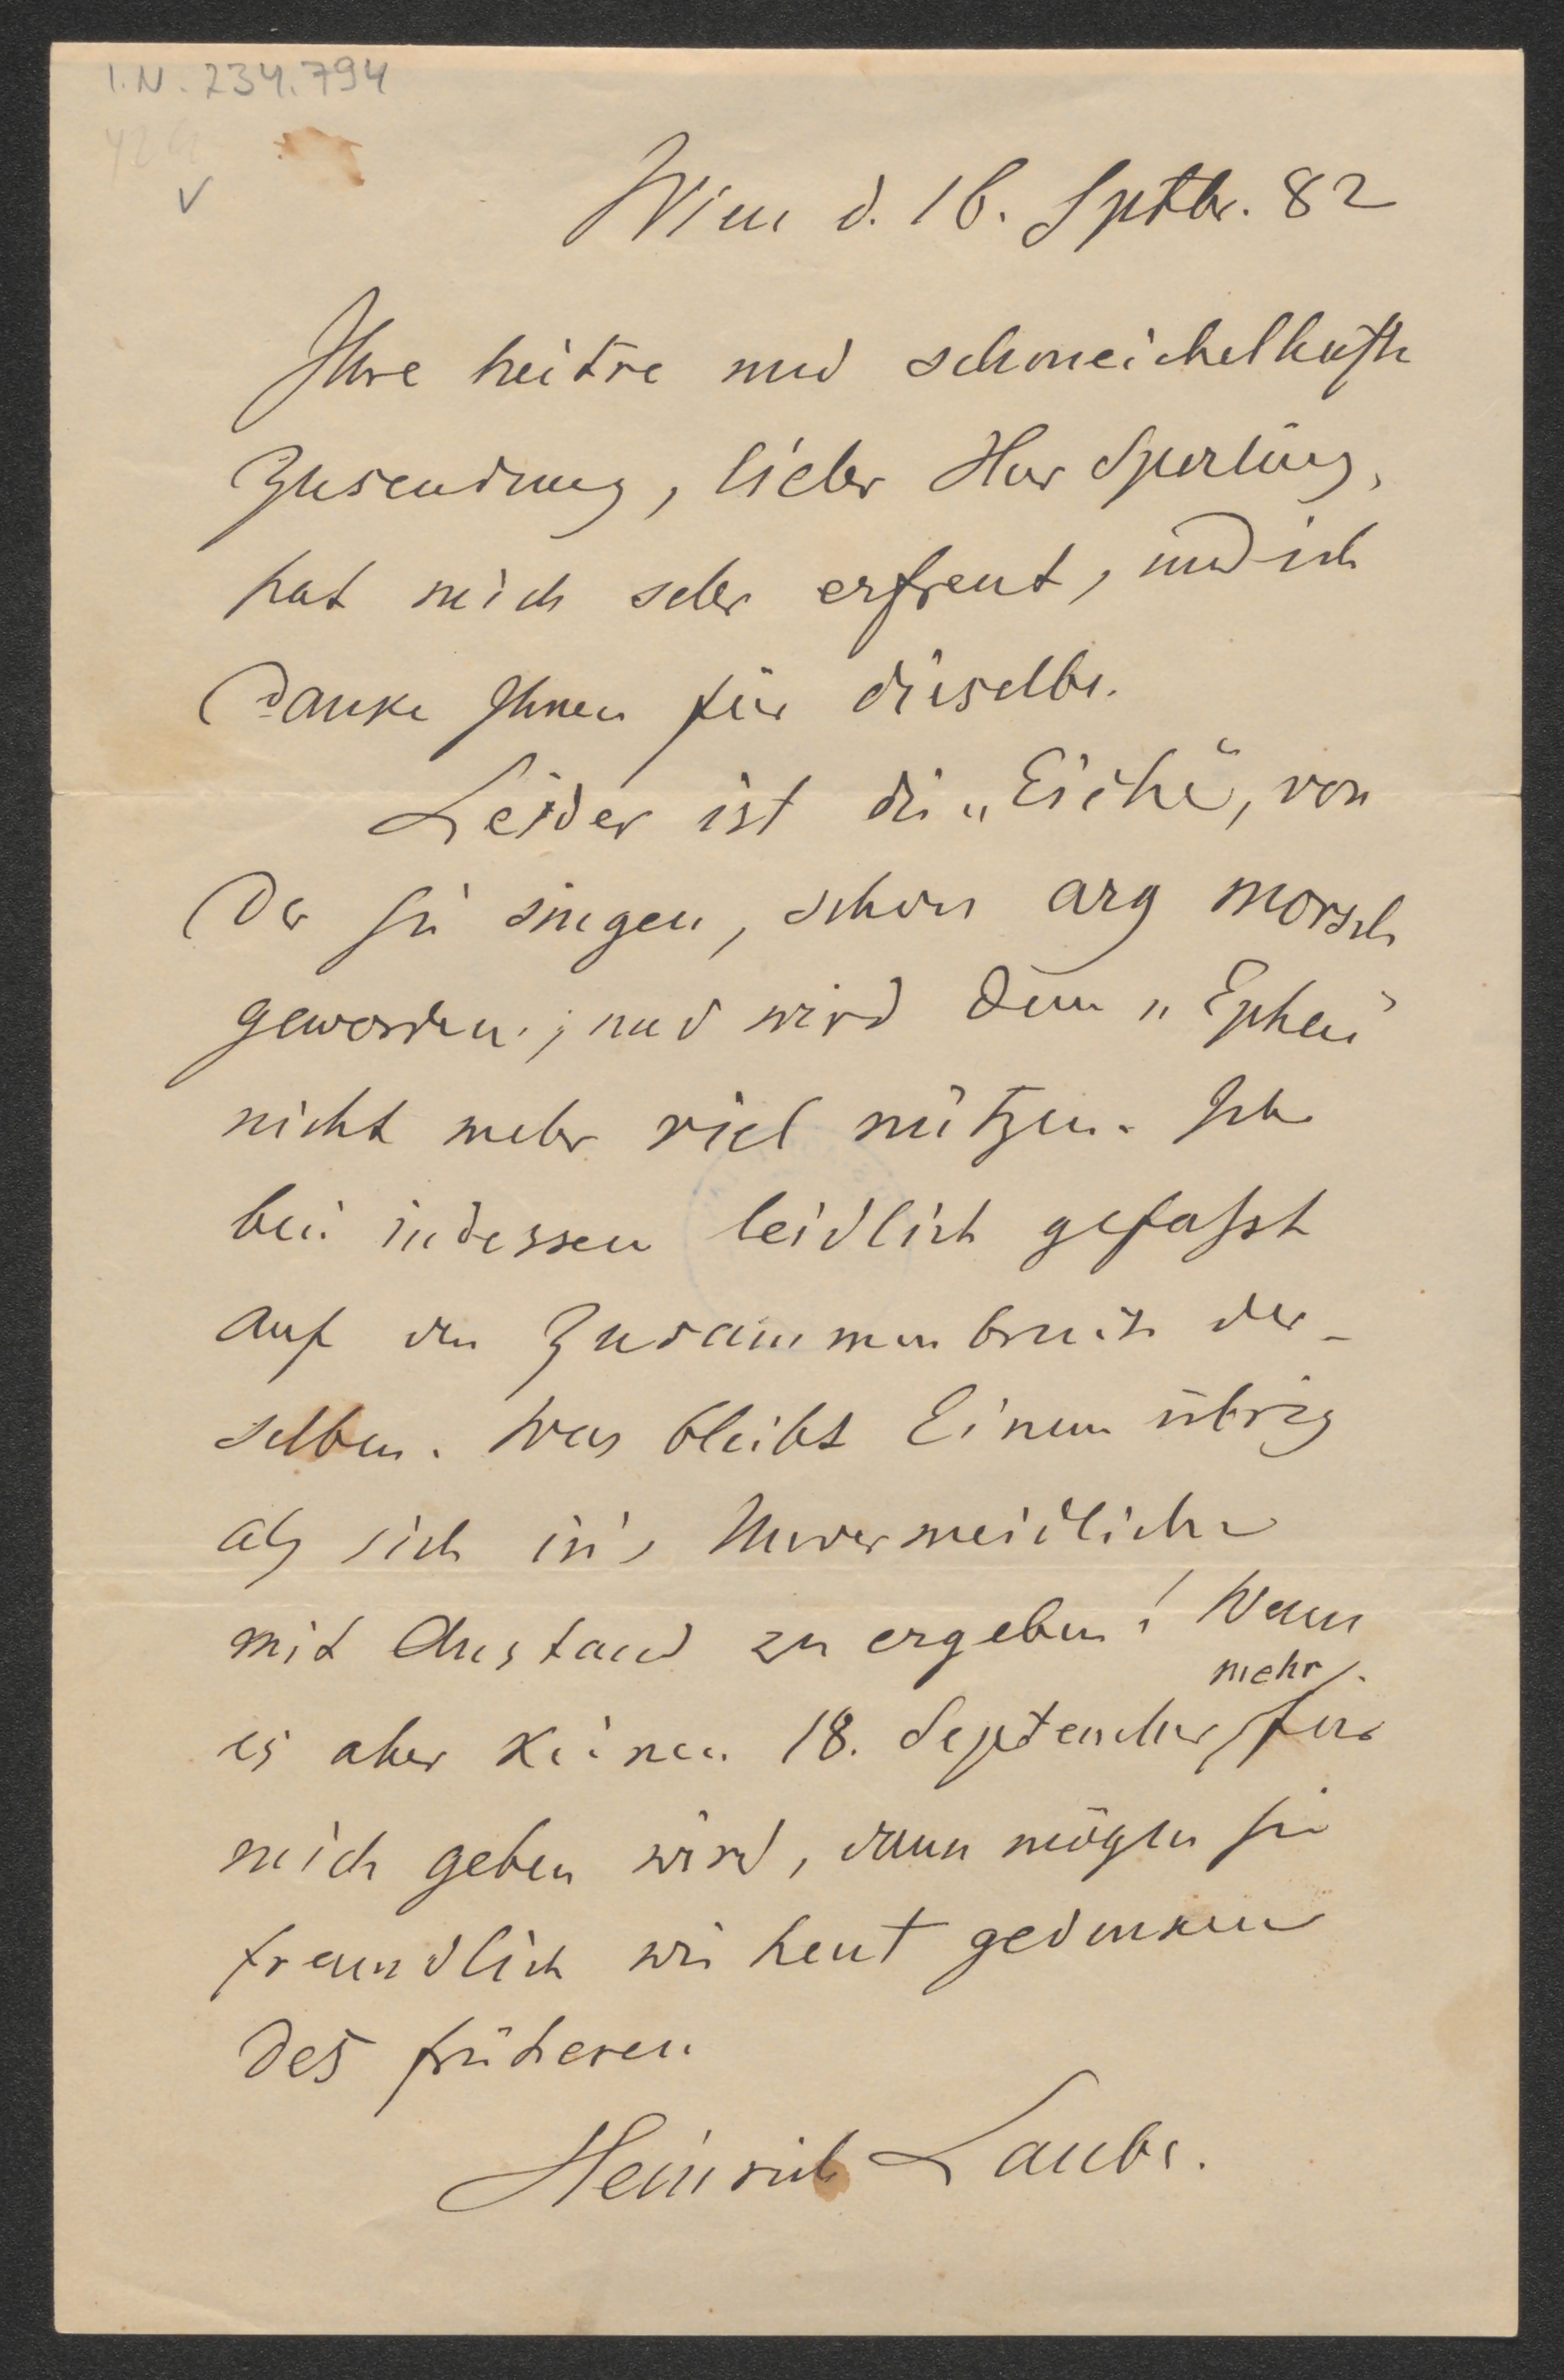 I.N. 234.794
Wien d. 16. Sptbr. 82
Ihre heitre und schmeichelhafte
Zusendung, lieber Herr Sperling,
hat mich sehr erfreut, und ich
danke Ihnen für dieselbe.
Leider ist die „Eiche“, von
der Sie singen, schon arg morsch
geworden, und wird dem „Epheu“
nicht mehr viel nützen. Ich
bin indessen leidlich gefaßt
auf den Zusammenbruch der-
selben. Was bleibt Einem übrig
als sich in's Unvermeidliche
mit Anstand zu ergeben! Wenn
es aber keinen 18. September mehr für
mich geben wird, dann mögen Sie
freundlich wie heut gedenken
des früheren
Heinrich Laube.